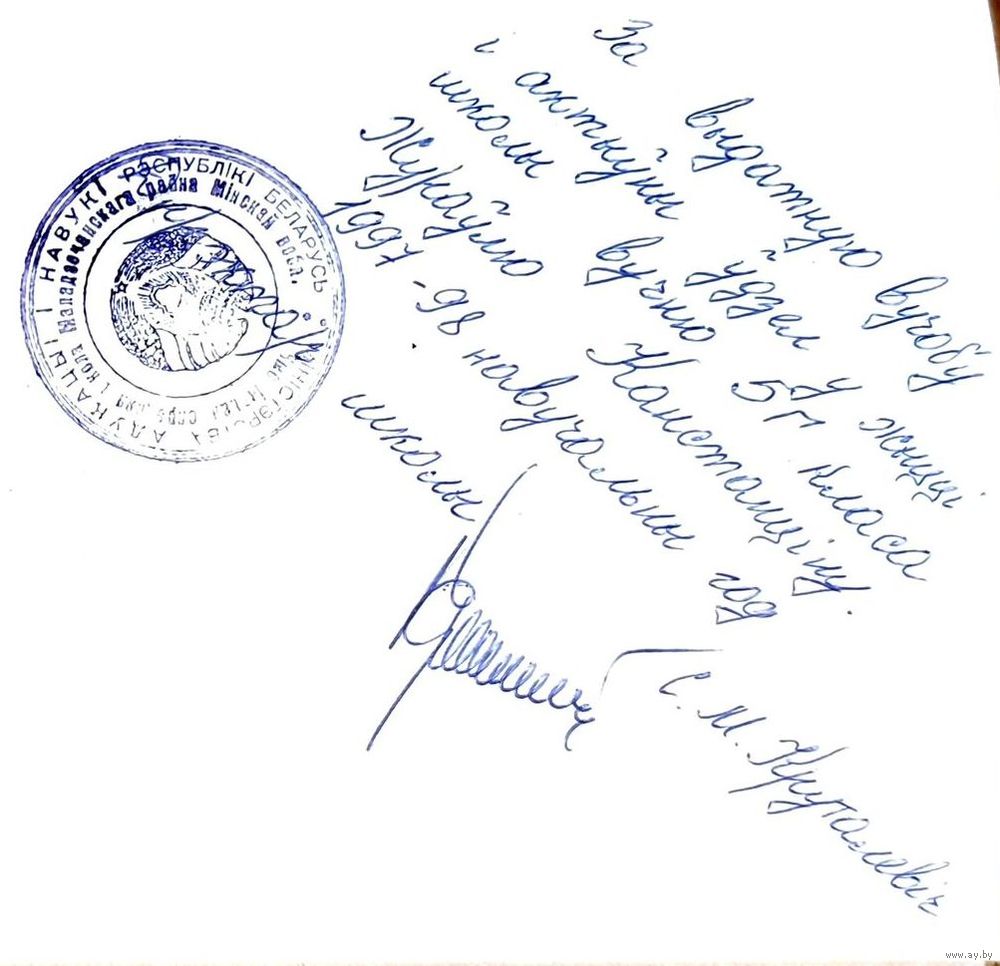 За выдатную вучобу
і актыўны ўдзел у жыцці
школы вучню 5"Г" класа
Жукаўлю Канстанціну.
1997-98 навучальны год
Дырэктар школы
С. М. Круталевіч
МІНІСТЭРСТВА АДУКАЦЫІ І НАВУКІ РЭСПУБЛІКІ БЕЛАРУСЬ
Маладзечанскага раёна Мінскай вобл.
www.ay.by